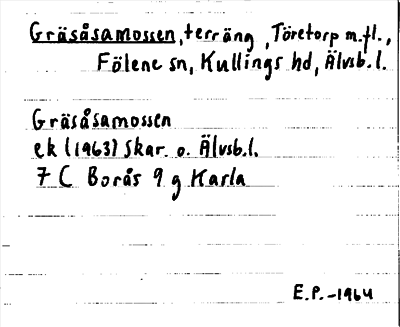 Gräsåsamossen, terräng, Töretorp m.fl.,
Fölene sn, Kullings hd, Älvsb.l.
Gräsåsamossen
ek (1963) Skar. o. Älvsb.l.
7 C Borås 9 g Karla
E.P.-1964